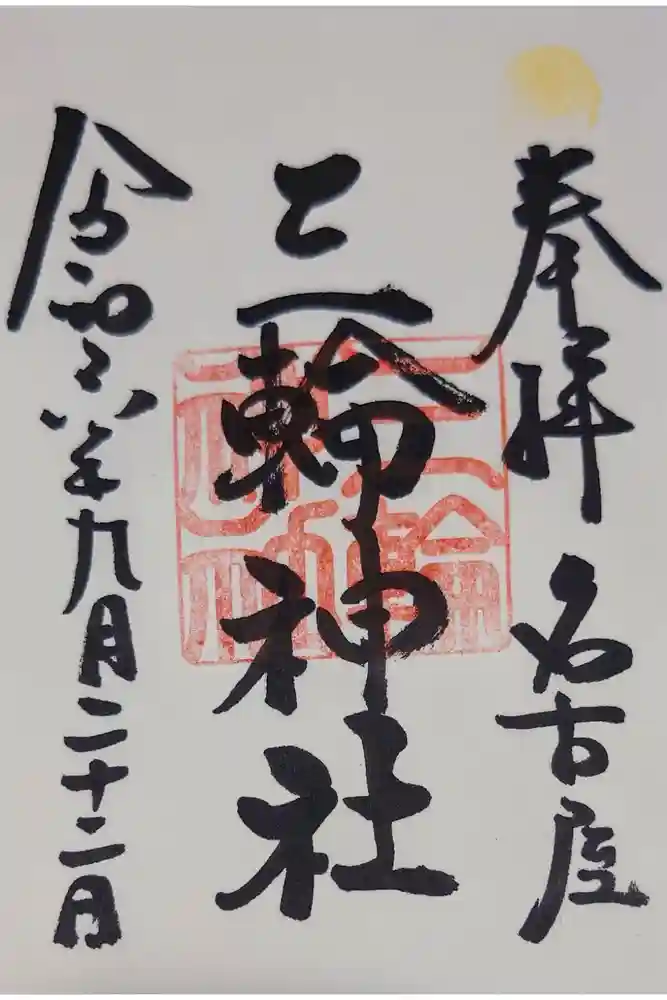 奉拝 名古屋
三輪神社
三輪神社
令和六年九月二十二日